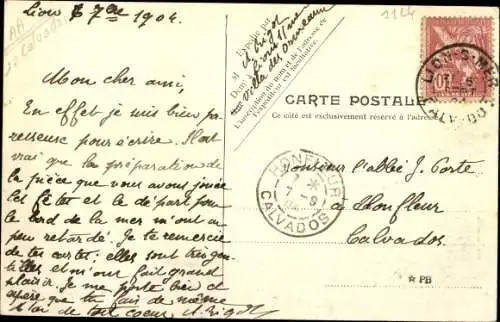 Lion 7 7bre 1904.
Mon cher ami,
En effet je suis bien paresseuse pour écrire. Il est
vrai que la préparation de
la pièce que nous avons jouée
les fêtes et le départ pour
le bord de la mer m'ont un
peu retardé. Je te remercie
de tes cartes; elles sont très gentilles et m'ont fait grand
plaisir. Je me porte bien et
espère que tu fais de même
à toi de tout coeur,
Expédié par
M
Villa des
L'inscription du nom et de l'adresse de
l'expéditeur est facultative.
1124
CARTE POSTALE
Ce côté est exclusivement réservé à l'adresse
LION-S-MER
HONFLEUR
7 -9
04
CALVADOS
Monsieur l'abbé J. Corte
à Honfleur
Calvados.
PB